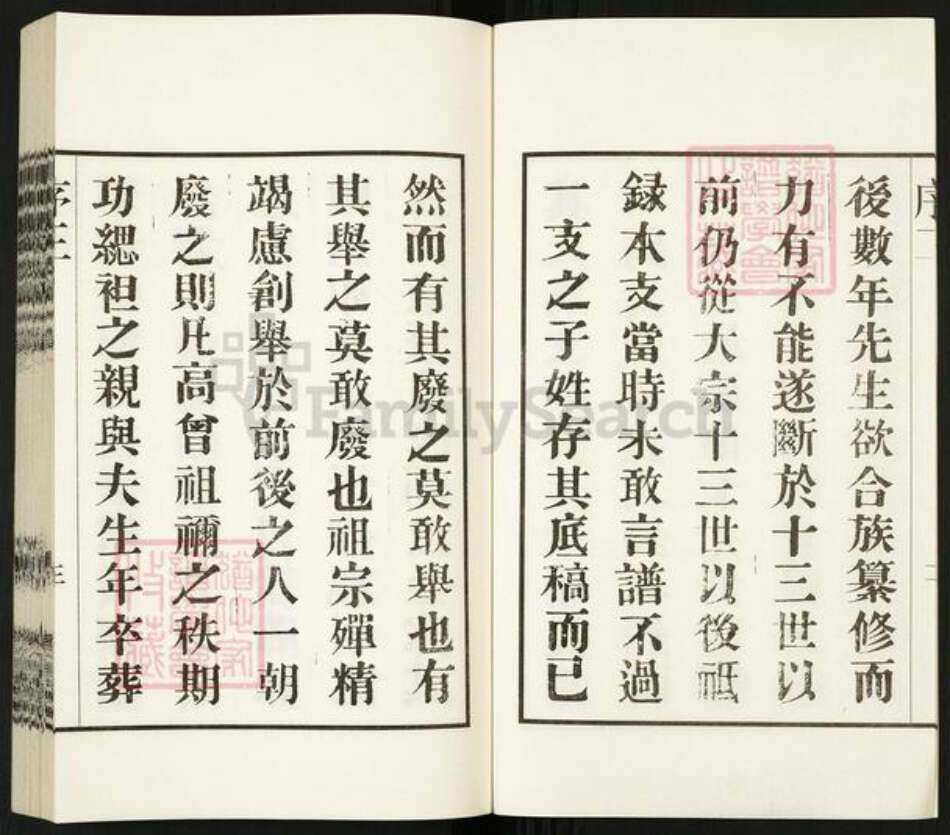 後數年先生欲合族纂修而
力有不能遂斷於十三世以
前仍從大宗十三世以後祗
録本支當時未敢言譜不過
一支之子姓存其底稿而已
然而有其廢之莫敢舉也有
其舉之莫敢廢也祖宗殫精
竭慮創舉於前後之人一朝
廢之則凡高曾祖禰之秩期
功緦袒之親與夫生年卒葬
序三
FamilySearch